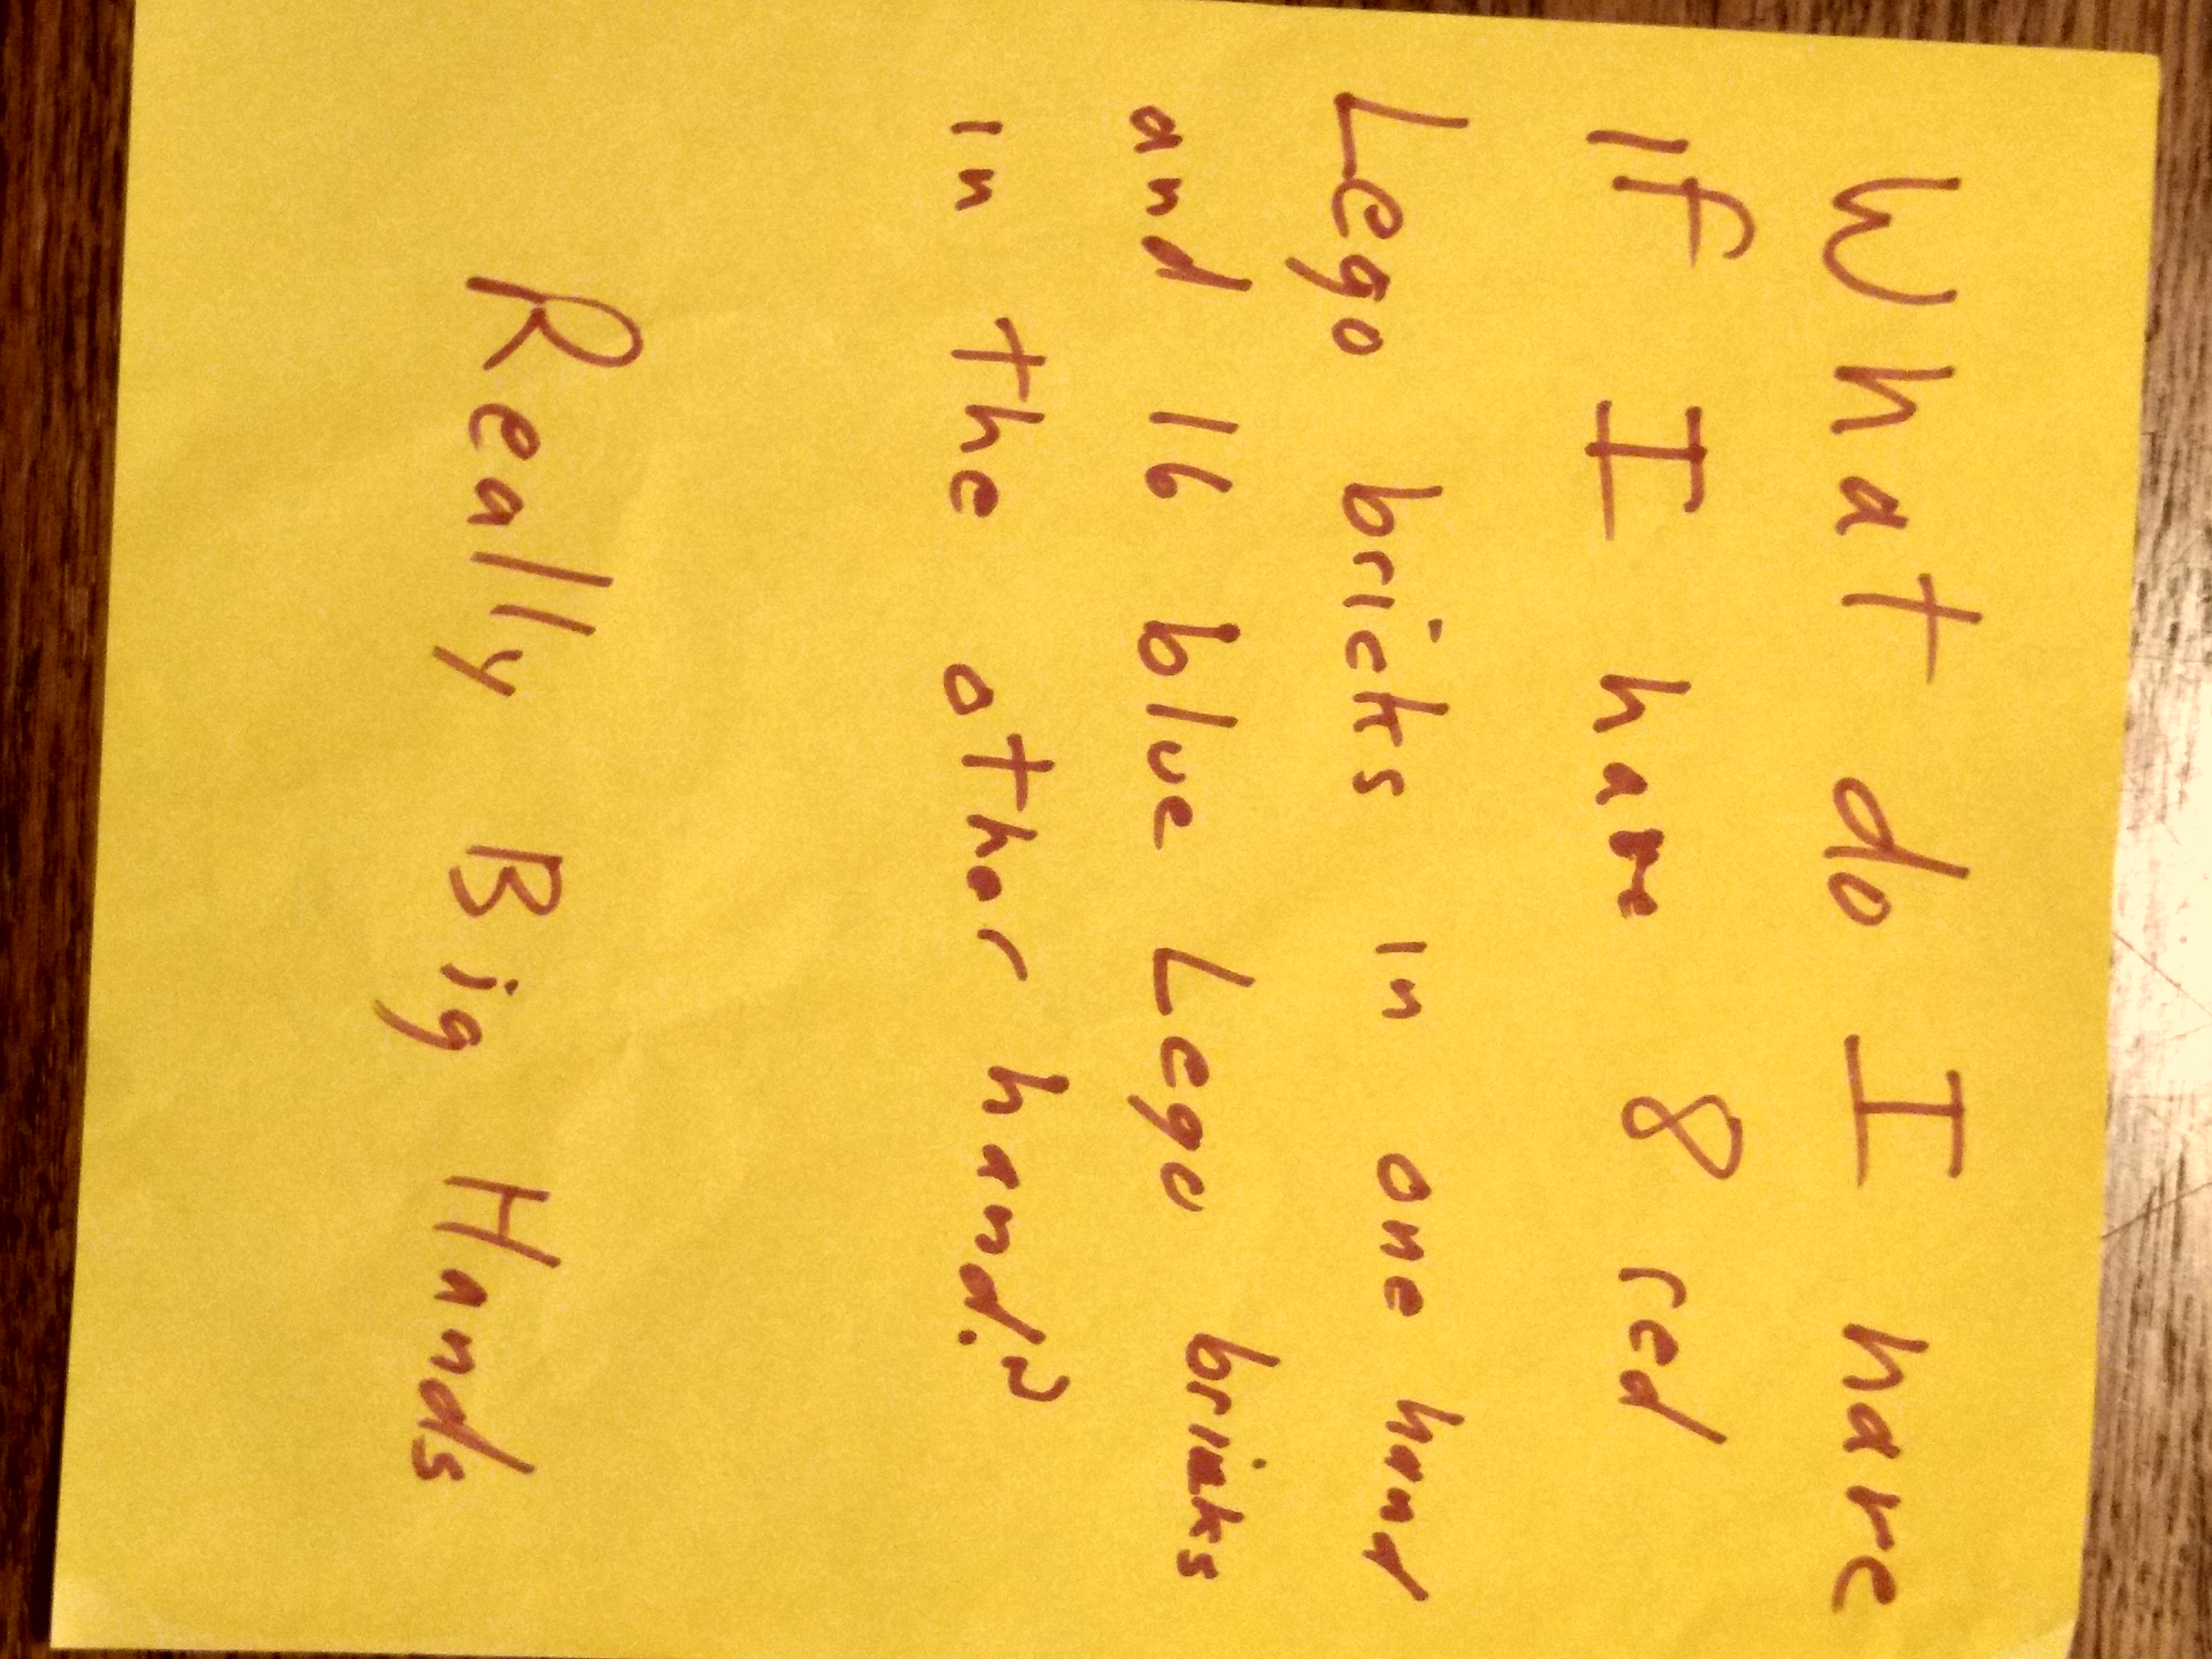 What do I have
If I have 8 red
Lego bricks in one hand
and 16 blue Lego bricks
in the other hand?
Really Big Hands